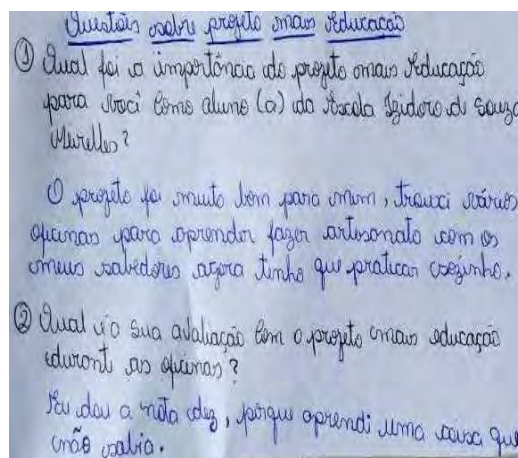 Questões sobre projeto mais Educação
① Qual foi a importância do projeto mais Educação
para você como aluno (a) da Escola Izidoro de Souza
Meirelles?
O projeto foi muito bom para mim, trouxi vários
oficinas para aprender fazer artesanato com os
meus sabedores agora tenho que praticar sozinho.
② Qual é a sua avaliação com o projeto mais educação
durante as oficinas?
Eu dou a nota dez, porque aprendi uma coisa que
não sabia.